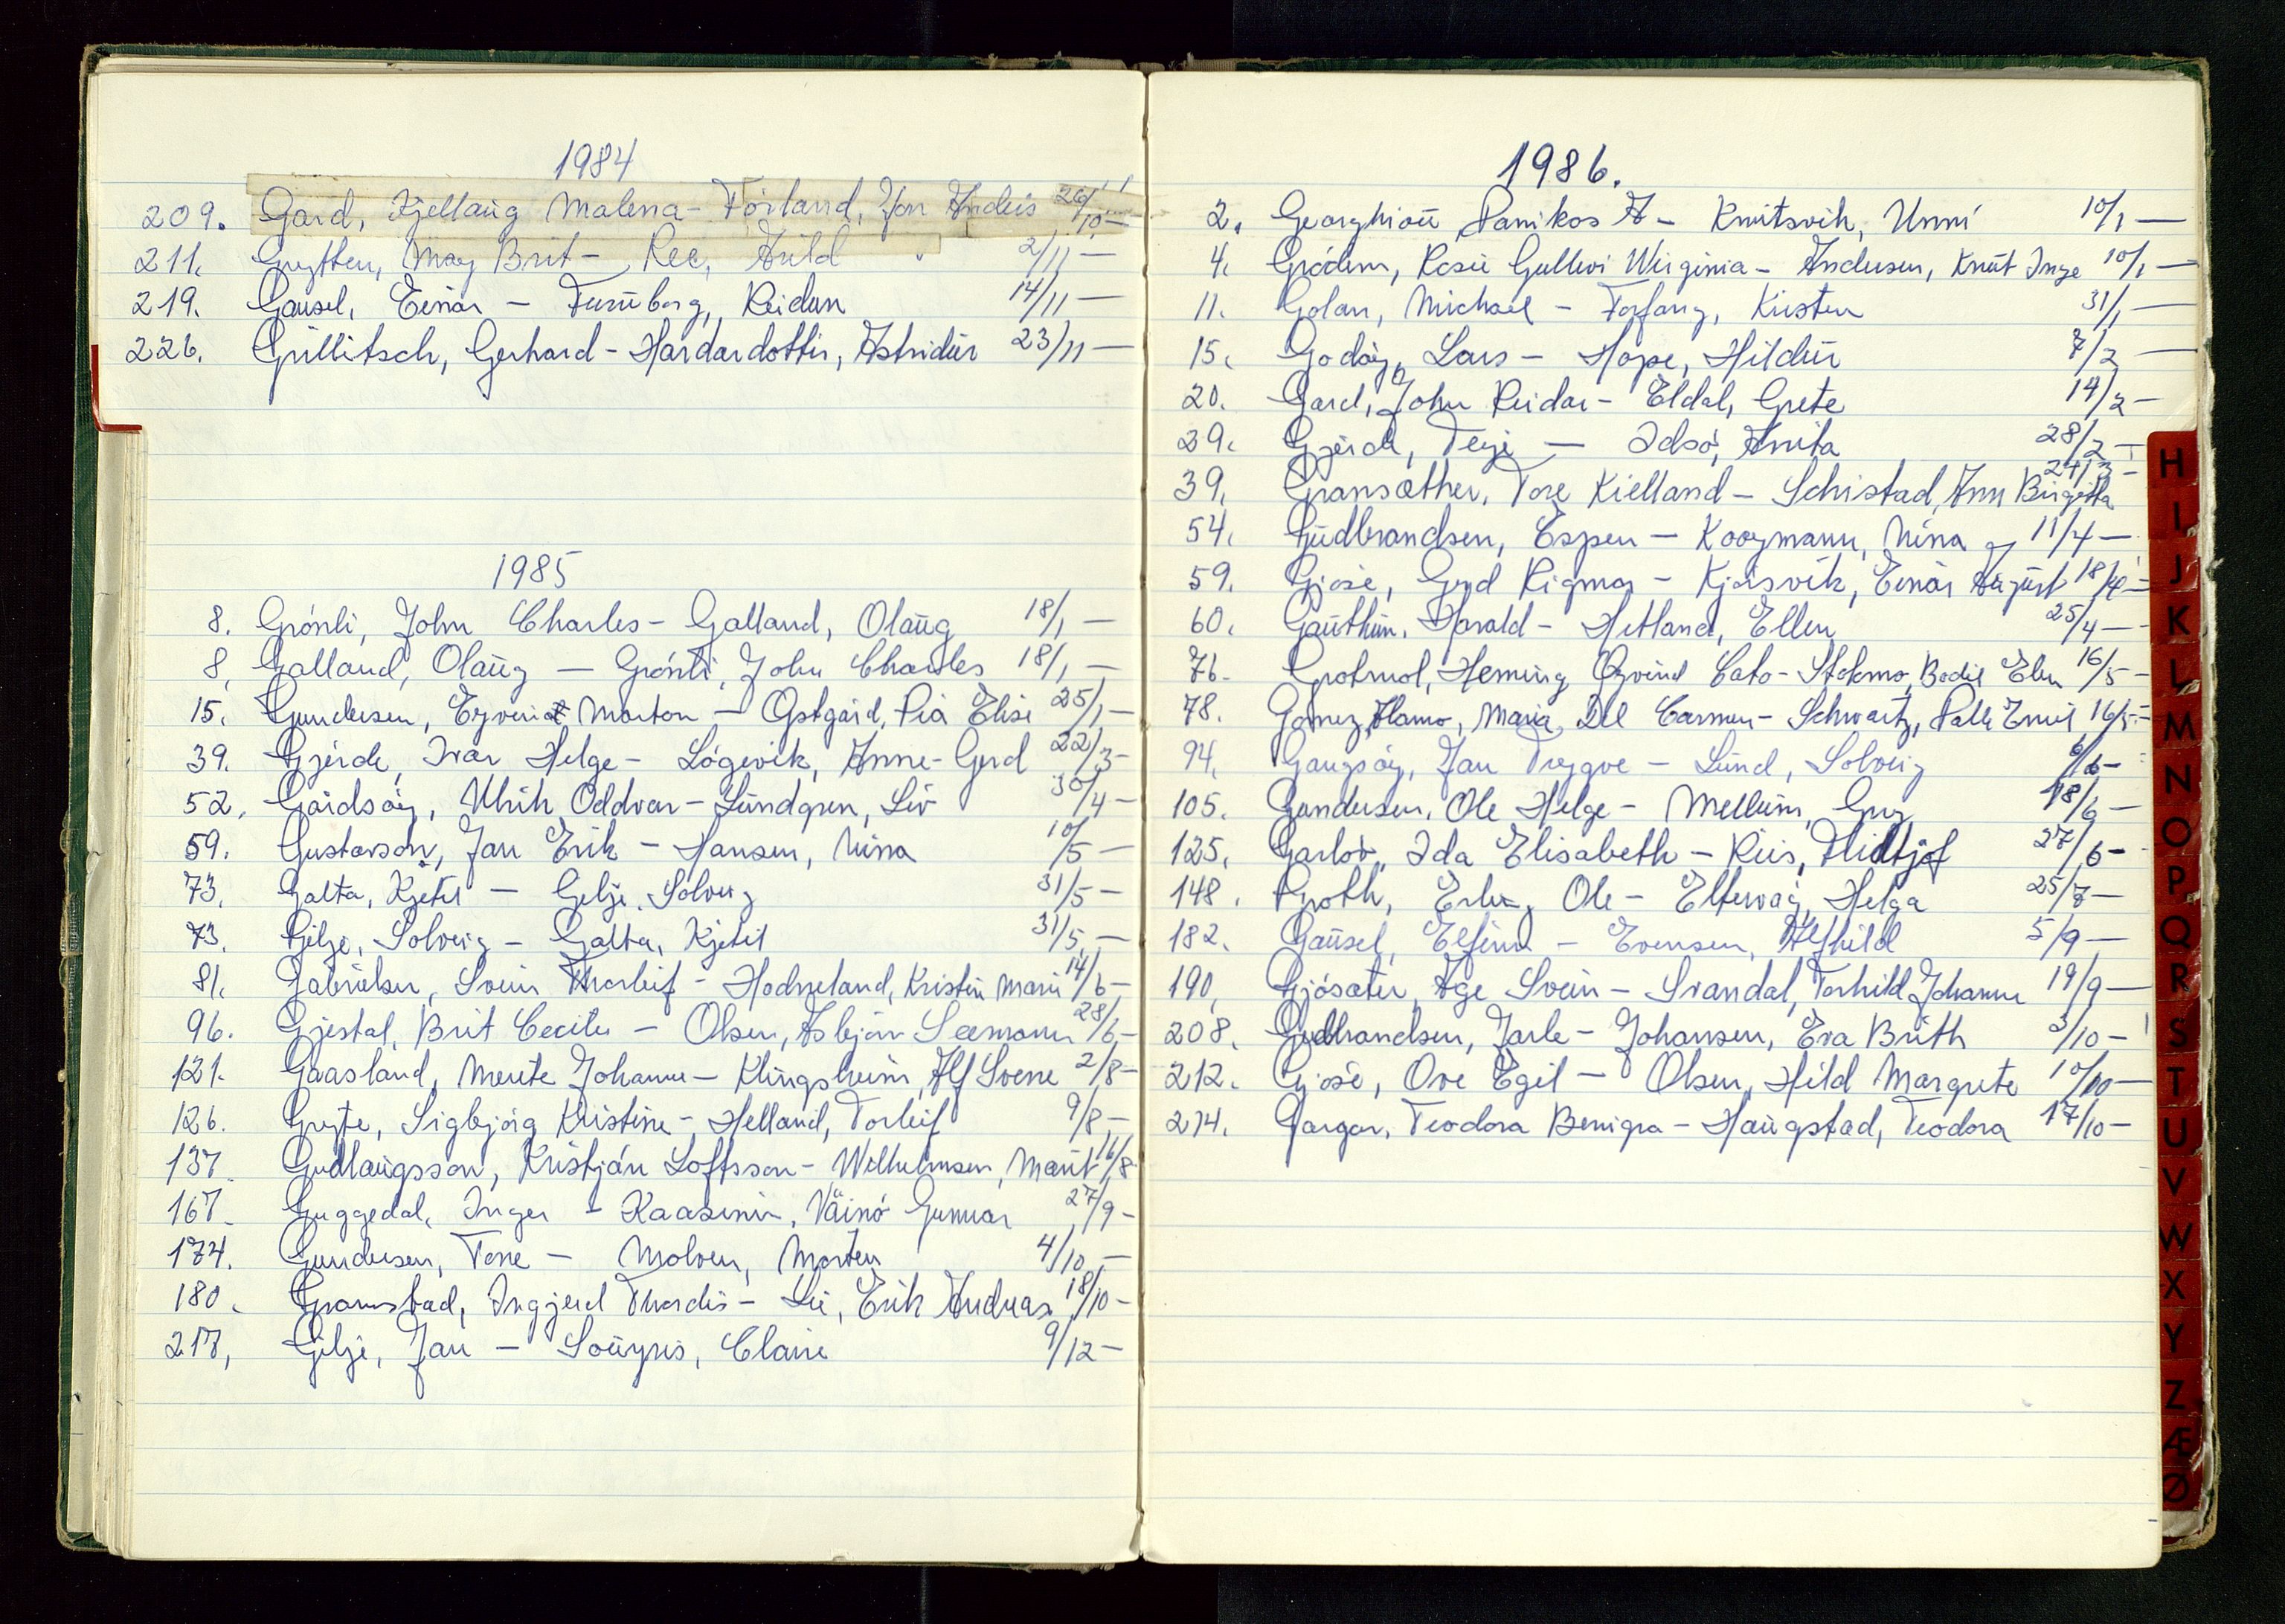 1984
209. Gard, Kjellaug Malena - Förland, Jon Anders 26/10 -
211. Grytten, May Brit - Ree, Arild 2/11 -
219. Gausel, Einar - Furuborg, Reidun 14/11 -
226. Grillitsch, Gerhard - Hardardottir, Astridur 23/11 -
1985
8. Grónli, John Charles - Galland, Olaug 18/1 -
8. Galland, Olaug - Grónli, John Charles 18/1 -
15. Gundersen, Eyvind Morton - Ostgård, Pia Elise 25/1 -
39. Gjerde, Ivar Helge - Lógevik, Anne-Gerd 22/3 -
52. Gårdsóy, Ulrik Oddvar - Lundgren, Liv 30/4 -
59. Gustavson, Jan Erik - Hansen, Nina 10/5 -
73. Galta, Kjetil - Gilje, Solveig 31/5 -
73. Gilje, Solveig - Galta, Kjetil 31/5 -
81. Gabrielsen, Svein Thorleif - Hodneland, Kristin Marie 14/6 -
96. Gjestal, Brit Cecilie - Olsen, Asbjórn Seemann 28/6 -
121. Gaasland, Merete Johanne - Klingsheim, Alf Sverre 2/8 -
126. Gryte, Sigbjórg Kristine - Helland, Torleif 9/8 -
137. Gudlaugsson, Kristján Loftsson - Wilhelmsen, Marit 16/8
167. Guggedal, Inger - Kaasinin, Väinó Gunnar 27/9 -
174. Gundersen, Tone - Molven, Morten 4/10 -
180. Gramstad, Ingjerd Thordis - Lie, Erik Andreas 18/10 -
217. Gilje, Jan - Souyris, Claire 9/12 -
1986.
2. Georghiou Panikos A - Knutsvik, Unni 10/1 -
4. Gródem, Rosie Gullevi Wirginia - Andersen, Knut Inge 10/1 -
11. Golan, Michael - Forfang, Kirsten 31/1 -
15. Godóy, Lars - Hope, Hildur 7/2 -
20. Gard, John Reidar - Eldal, Grete 14/2 -
29. Gjerde, Terje - Idsó, Anita 28/2 -
39. Gransæther, Tore Kielland - Schistad, Ann Birgitta 24/3 -
54. Gudbrandsen, Espen - Kooymann, Nina 11/4 -
59. Gjose, Gerd Rigmor - Kjórsvik, Einar August 18/4 -
60. Gauthun, Harald - Hetland, Ellen 25/4 -
76. Grotmol, Heming Öyvind Cato - Stokmo, Bodil Elin 16/5 -
78. Gomez, Alamo, Maria Del Carmen - Schwartz, Palle Emil 16/5 -
94. Gangsóy, Jan Trygve - Lund, Solveig 6/6 -
105. Gundersen, Ole Helge - Mellum, Gry 18/6 -
125. Garlov, Ida Elisabeth - Riis, Fridtjof 27/6 -
148. Groth, Erling Ole - Eltervåg, Helga 25/7 -
182. Gausel, Elfinn - Evensen, Alfhild 5/9 -
190. Gjósæter, Åge Svein - Svandal, Torhild Johanne 19/9 -
208. Gudbrandsen, Jarle - Johansen, Eva Brith 3/10 -
212. Gjose, Ove Egil - Olsen, Hild Margrete 10/10 -
214. Gargar, Teodora Benigra - Haugstad, Teodora 17/10 -
H
I
J
K
L
M
N
O
P
Q
R
S
T
U
V
W
X
Y
Z
Æ
Ø